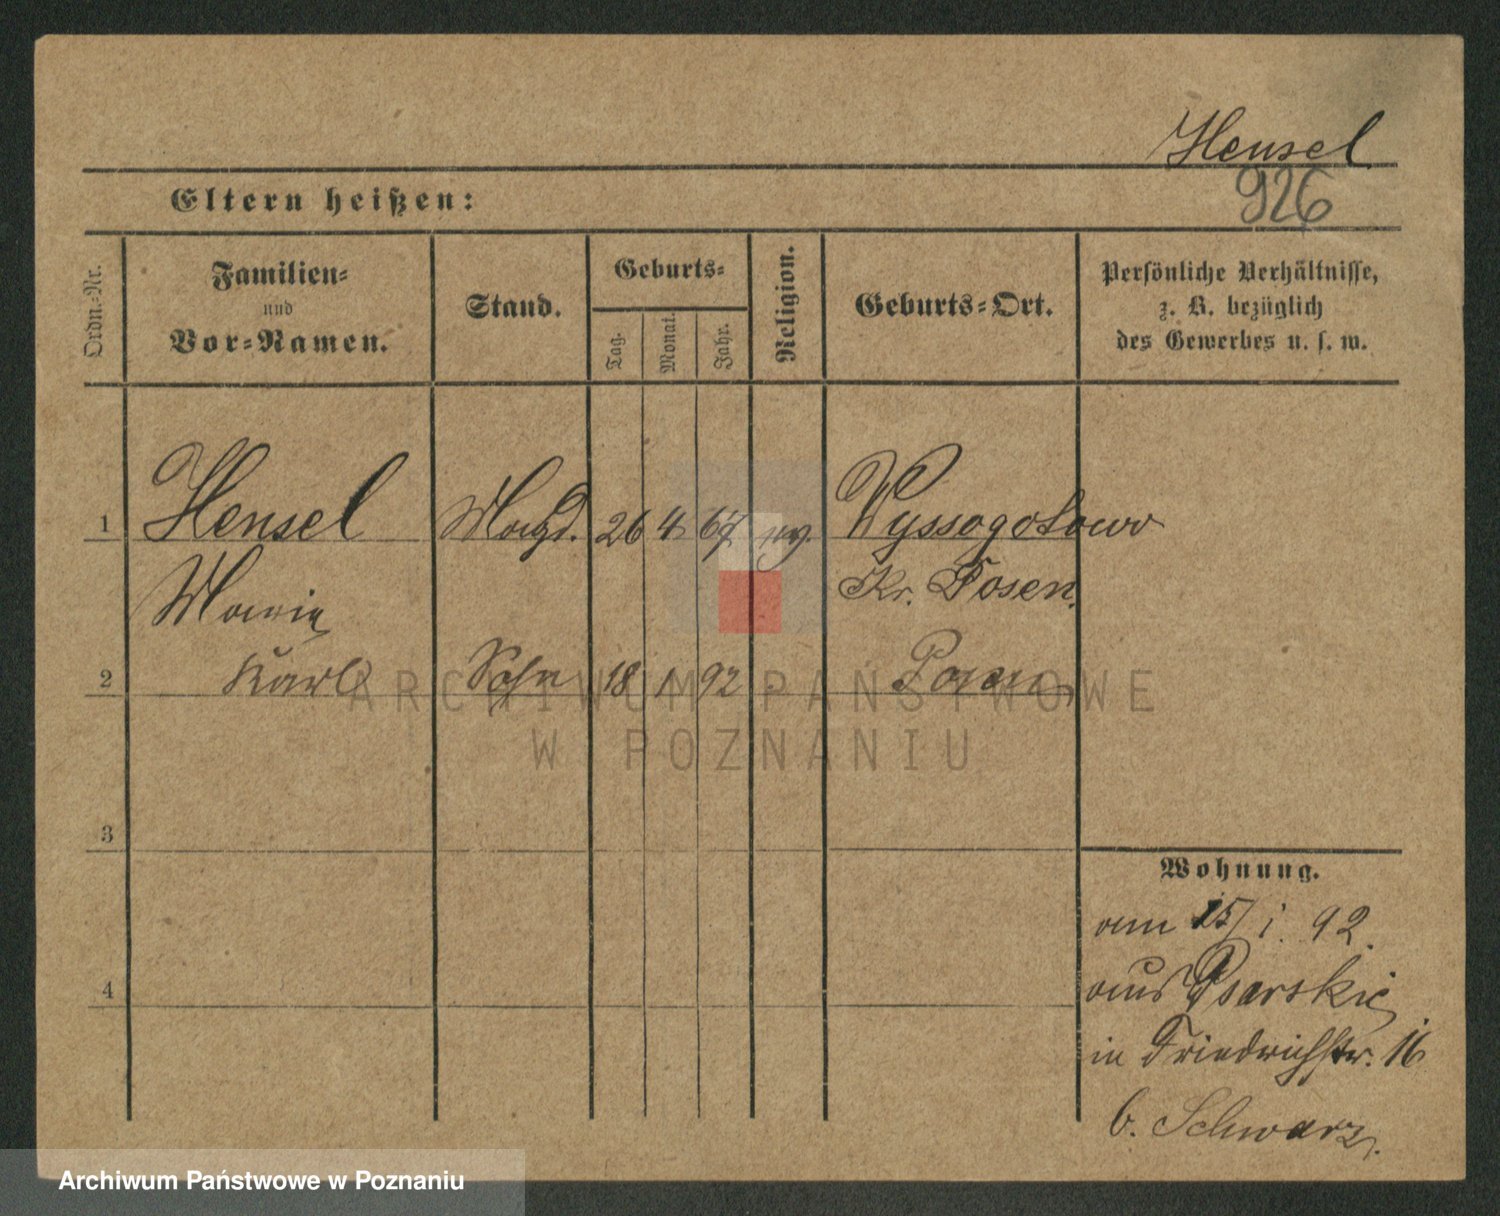 Hensel
926
Eltern heißen:
Ordn.-Nr.
Familien-
und
Vor-Namen.
Stand.
Geburts-
Tag.
Monat.
Jahr.
Religion.
Geburts-Ort.
Persönliche Verhältnisse,
z. B. bezüglich
des Gewerbes u. s. w.
1 Hensel Magd. 26 4 67 Wyssogotowo
Marie Kr. Posen.
2 Karl Sohn 18 1 92 Posen
3
4
Wohnung.
am 15/1. 92.
aus Psarskie
in Friedrichstr. 16
b. Schwarz.
ARCHIWUM PAŃSTWOWE
W POZNANIU
Archiwum Państwowe w Poznaniu